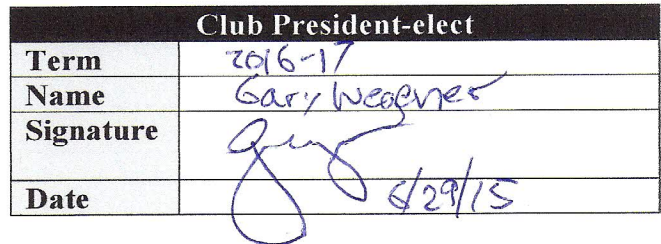 Club President-elect
Term 2016-17
Name Gary Wegener
Signature
Date 6/29/15